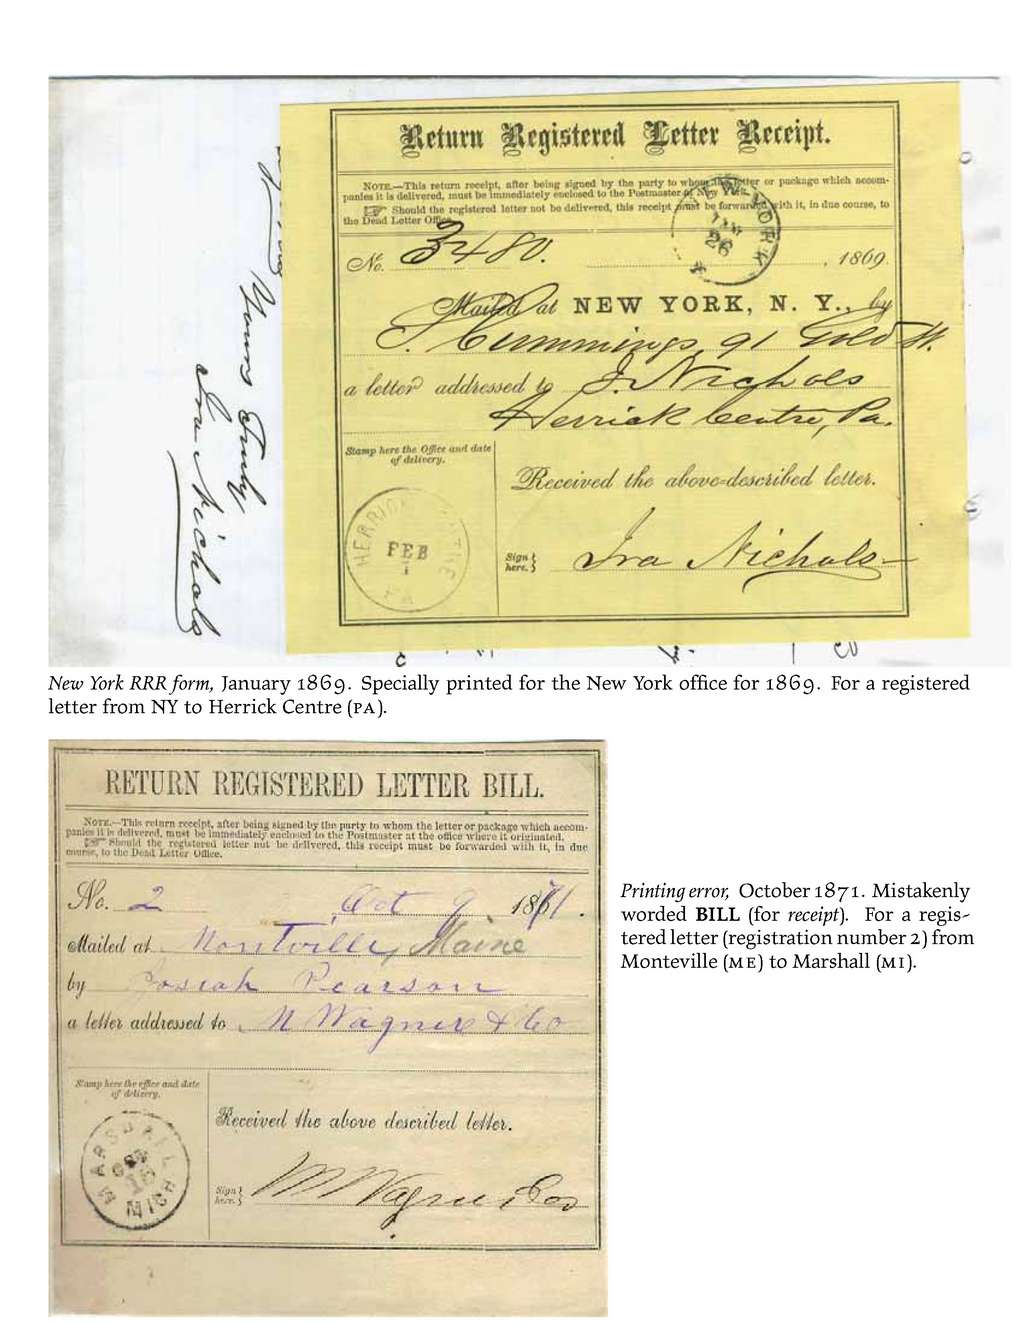 Return Registered Letter Receipt.
NOTE.—This return receipt, after being signed by the party to whom the letter or package which accom-
panies it is delivered, must be immediately enclosed to the Postmaster at New York.
☞ Should the registered letter not be delivered, this receipt must be forwarded with it, in due course, to
the Dead Letter Office.
NEW YORK
26
No. 3480. , 1869.
Mailed at NEW YORK, N. Y., by
T. Cummings, 91 Gold St.
a letter addressed to J. Nichols
Herrick Centre, Pa.
Stamp here the Office and date
of delivery.
HERRICK CENTRE
FEB
1
PA
Received the above-described letter.
Sign
here. Ira Nichols
Yours Truly
Ira Nichols
New York RRR form, January 1869. Specially printed for the New York office for 1869. For a registered
letter from NY to Herrick Centre (PA).
RETURN REGISTERED LETTER BILL.
NOTE.—This return receipt, after being signed by the party to whom the letter or package which accom-
panies it is delivered, must be immediately enclosed to the Postmaster at the office where it originated.
☞ Should the registered letter not be delivered, this receipt must be forwarded with it, in due
course, to the Dead Letter Office.
No. 2 Oct 9 1871.
Mailed at Montville, Maine
by Josiah Pearson
a letter addressed to M Wagner & Co
Stamp here the office and date
of delivery.
MARSHALL
OCT
16
MICH
Received the above described letter.
Sign
here. M Wagner & Co
Printing error, October 1871. Mistakenly
worded BILL (for receipt). For a regis-
tered letter (registration number 2) from
Monteville (ME) to Marshall (MI).